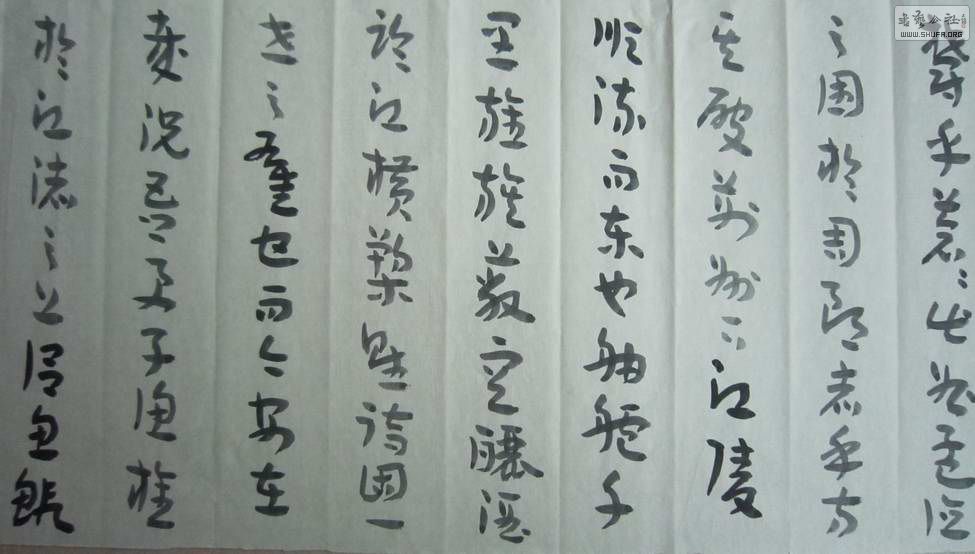 鬱乎蒼〻此非孟德
之困於周郎者乎方
其破荆州下江陵
順流而东也舳艫千
里旌旗蔽空釃酒
臨江横槊賦詩固一
世之雄也而今安在
哉况吾与子渔樵
於江渚之上侣鱼鰕
書藝公社
WWW.SHUFA.ORG